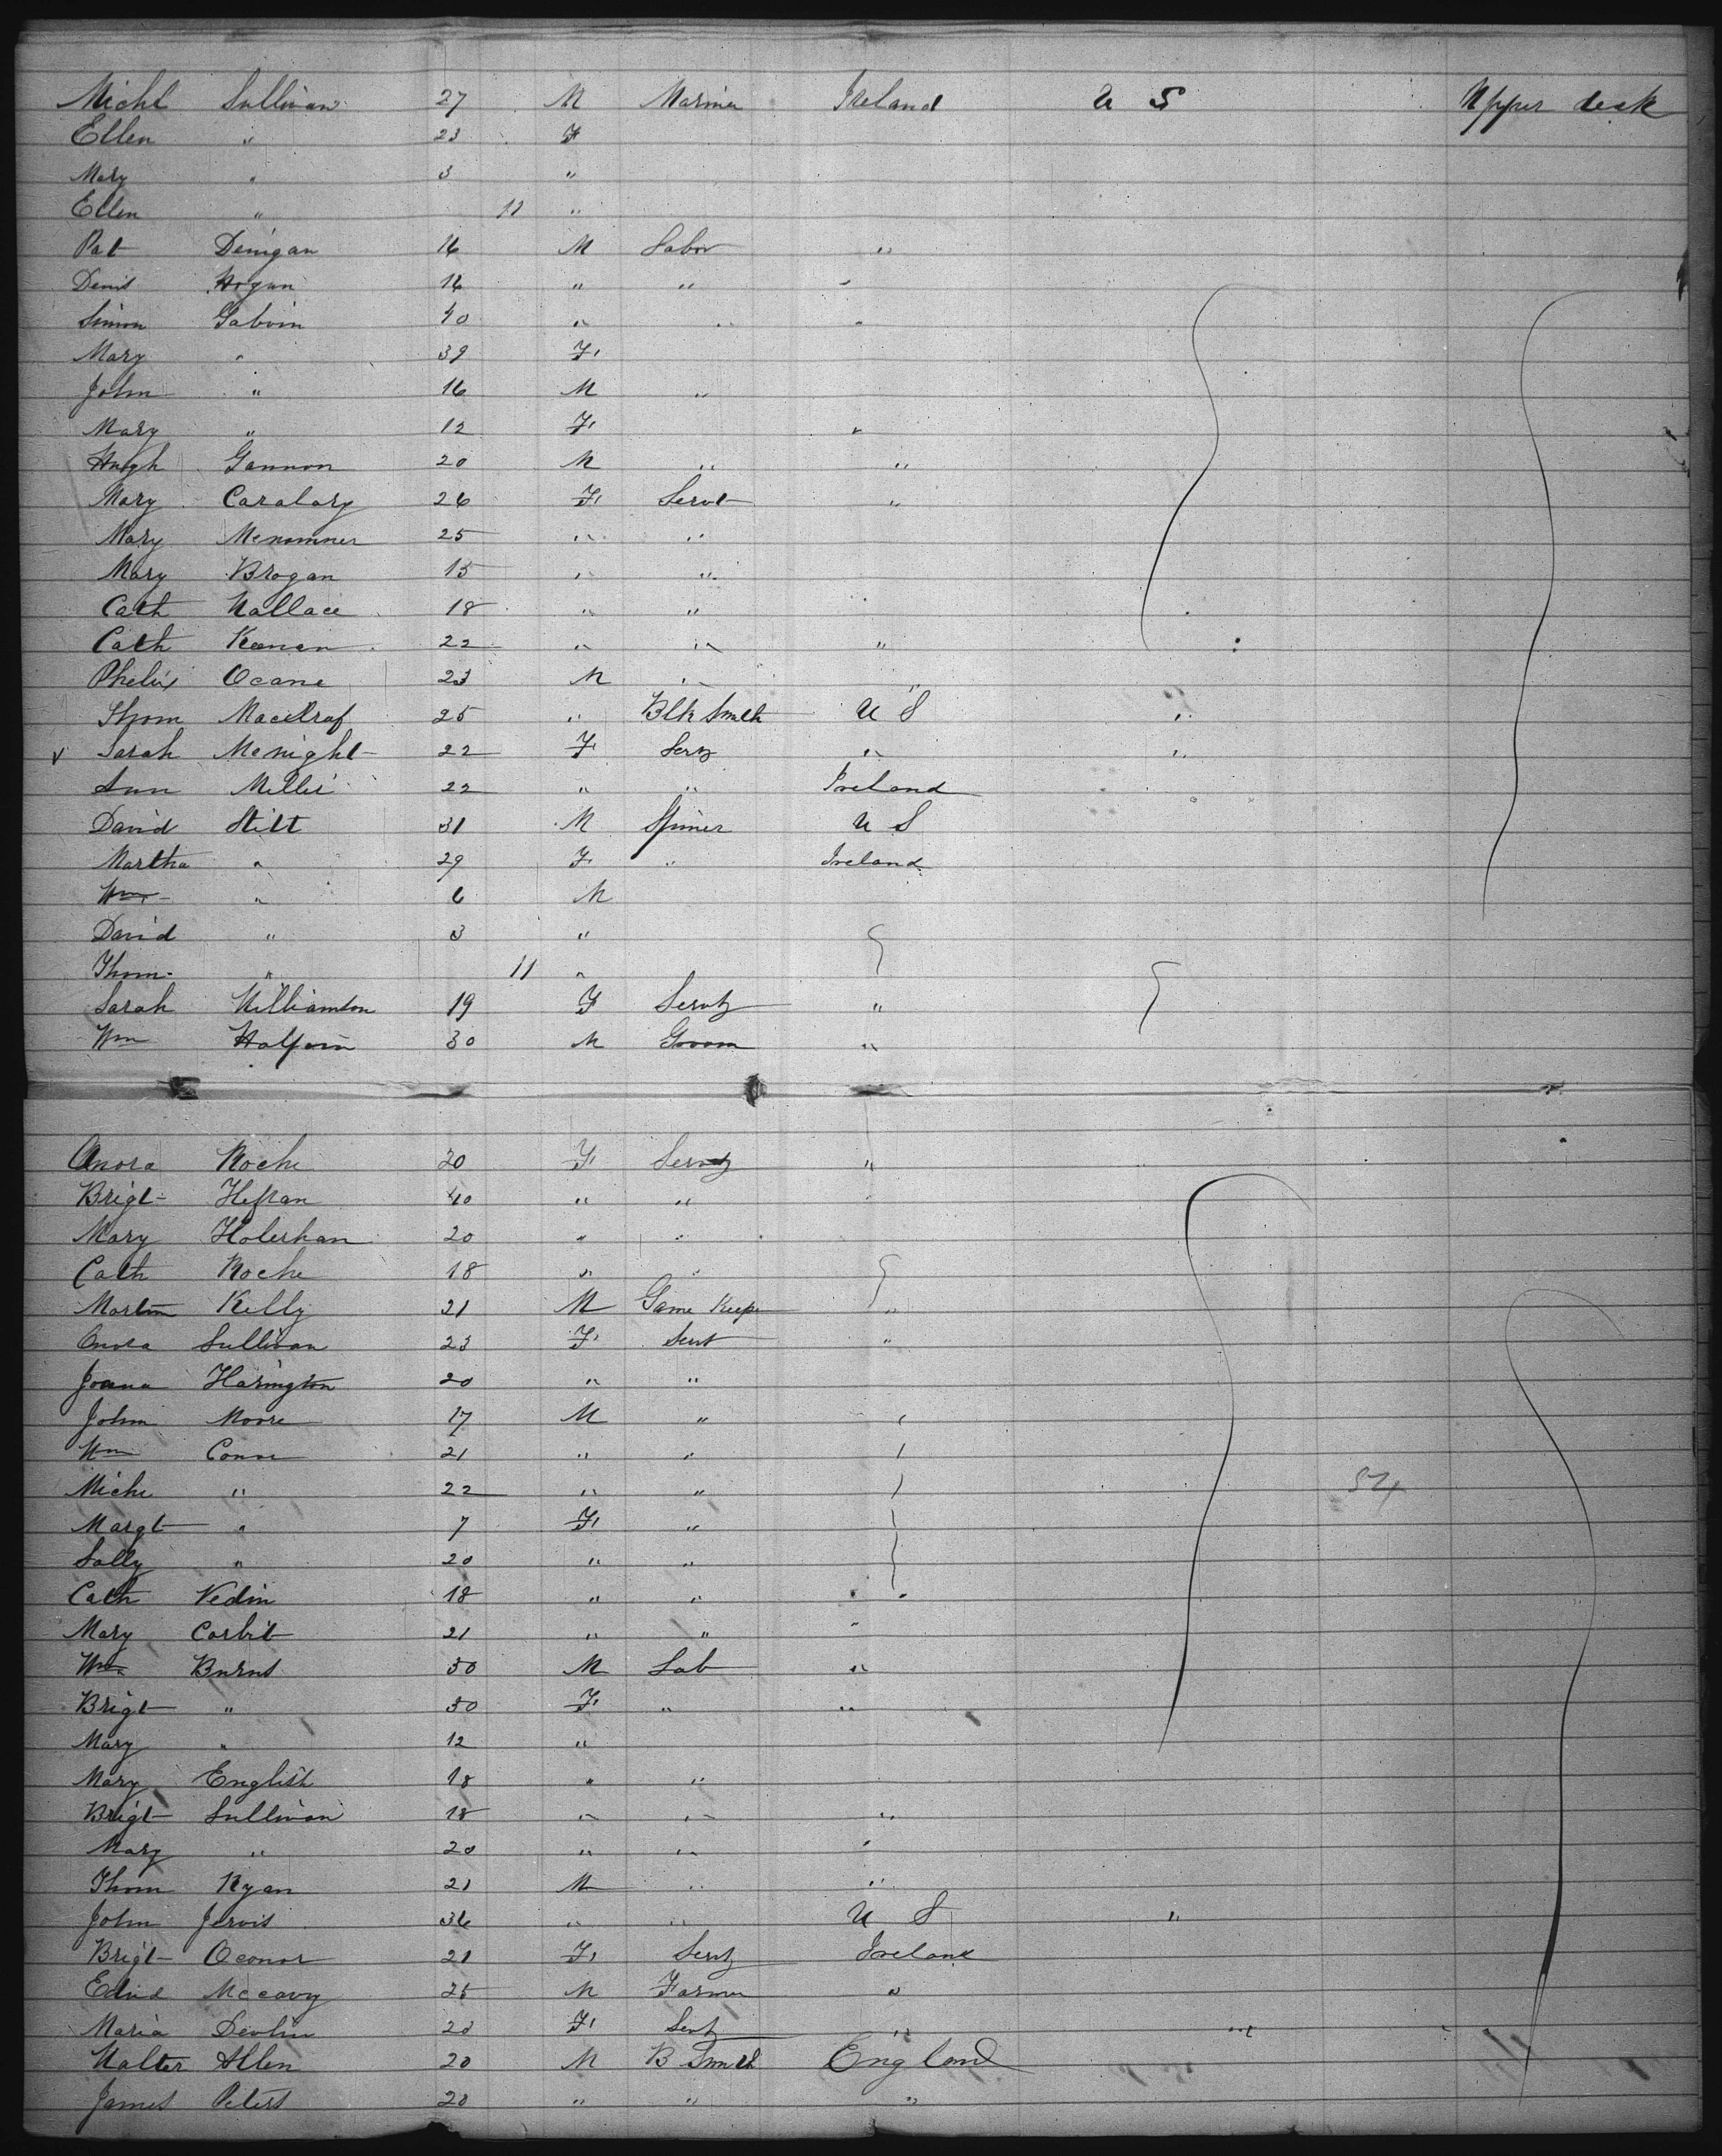 Michl Sullivan 27 M Mariner Ireland U S Upper deck
Ellen " 23 F
Mary " 3 "
Ellen " 11 "
Pat Denigan 16 M Labor "
Denis Hogan 16 " " "
Simon Galvin 40 " " "
Mary " 39 F
John " 16 M "
Mary " 12 F "
Hugh Gannon 20 M " "
Mary 26 F Servt "
Mary 25 " "
Mary Brogan 15 " "
Cath Wallace 18 " "
Cath Keenan 22 " " "
Phelix Ocane 23 M " "
Thom 25 " Blk Smith U S "
v Sarah Mcnight 22 F Servt " "
Ann Miller 22 " " Ireland
David Stitt 31 M Spiner U S
Martha " 29 F " Ireland
Wm " 6 M
David " 3 "
Thom " 11 "
Sarah Williamson 19 F Servt "
Wm Halpin 30 M Groom "
Anora Roche 20 F Servt "
Brigt 40 " "
Mary Holerhan 20 " "
Cath Roche 18 " "
Martin Kelly 21 M Game Keeper "
Onora Sullivan 23 F Servt "
Joana Harington 20 " "
John Moore 17 M "
Wm 21 " "
Miche " 22 " " 54
Margt " 7 F "
Sally " 20 " "
Cath 18 " " "
Mary Corbit 21 " " "
Wm Burns 50 M Lab "
Brigt " 50 F " "
Mary " 12 "
Mary English 18 " "
Brigt Sullivan 18 " " "
Mary " 20 " " "
Thom Ryan 21 M " "
John Jervis 36 " " U S "
Brigt Oconor 21 F Servt Ireland
Edwd 25 M Farmer "
Maria Devlin 20 F Servt " "
Walter Allen 20 M B Smith England
James Peters 20 " " "